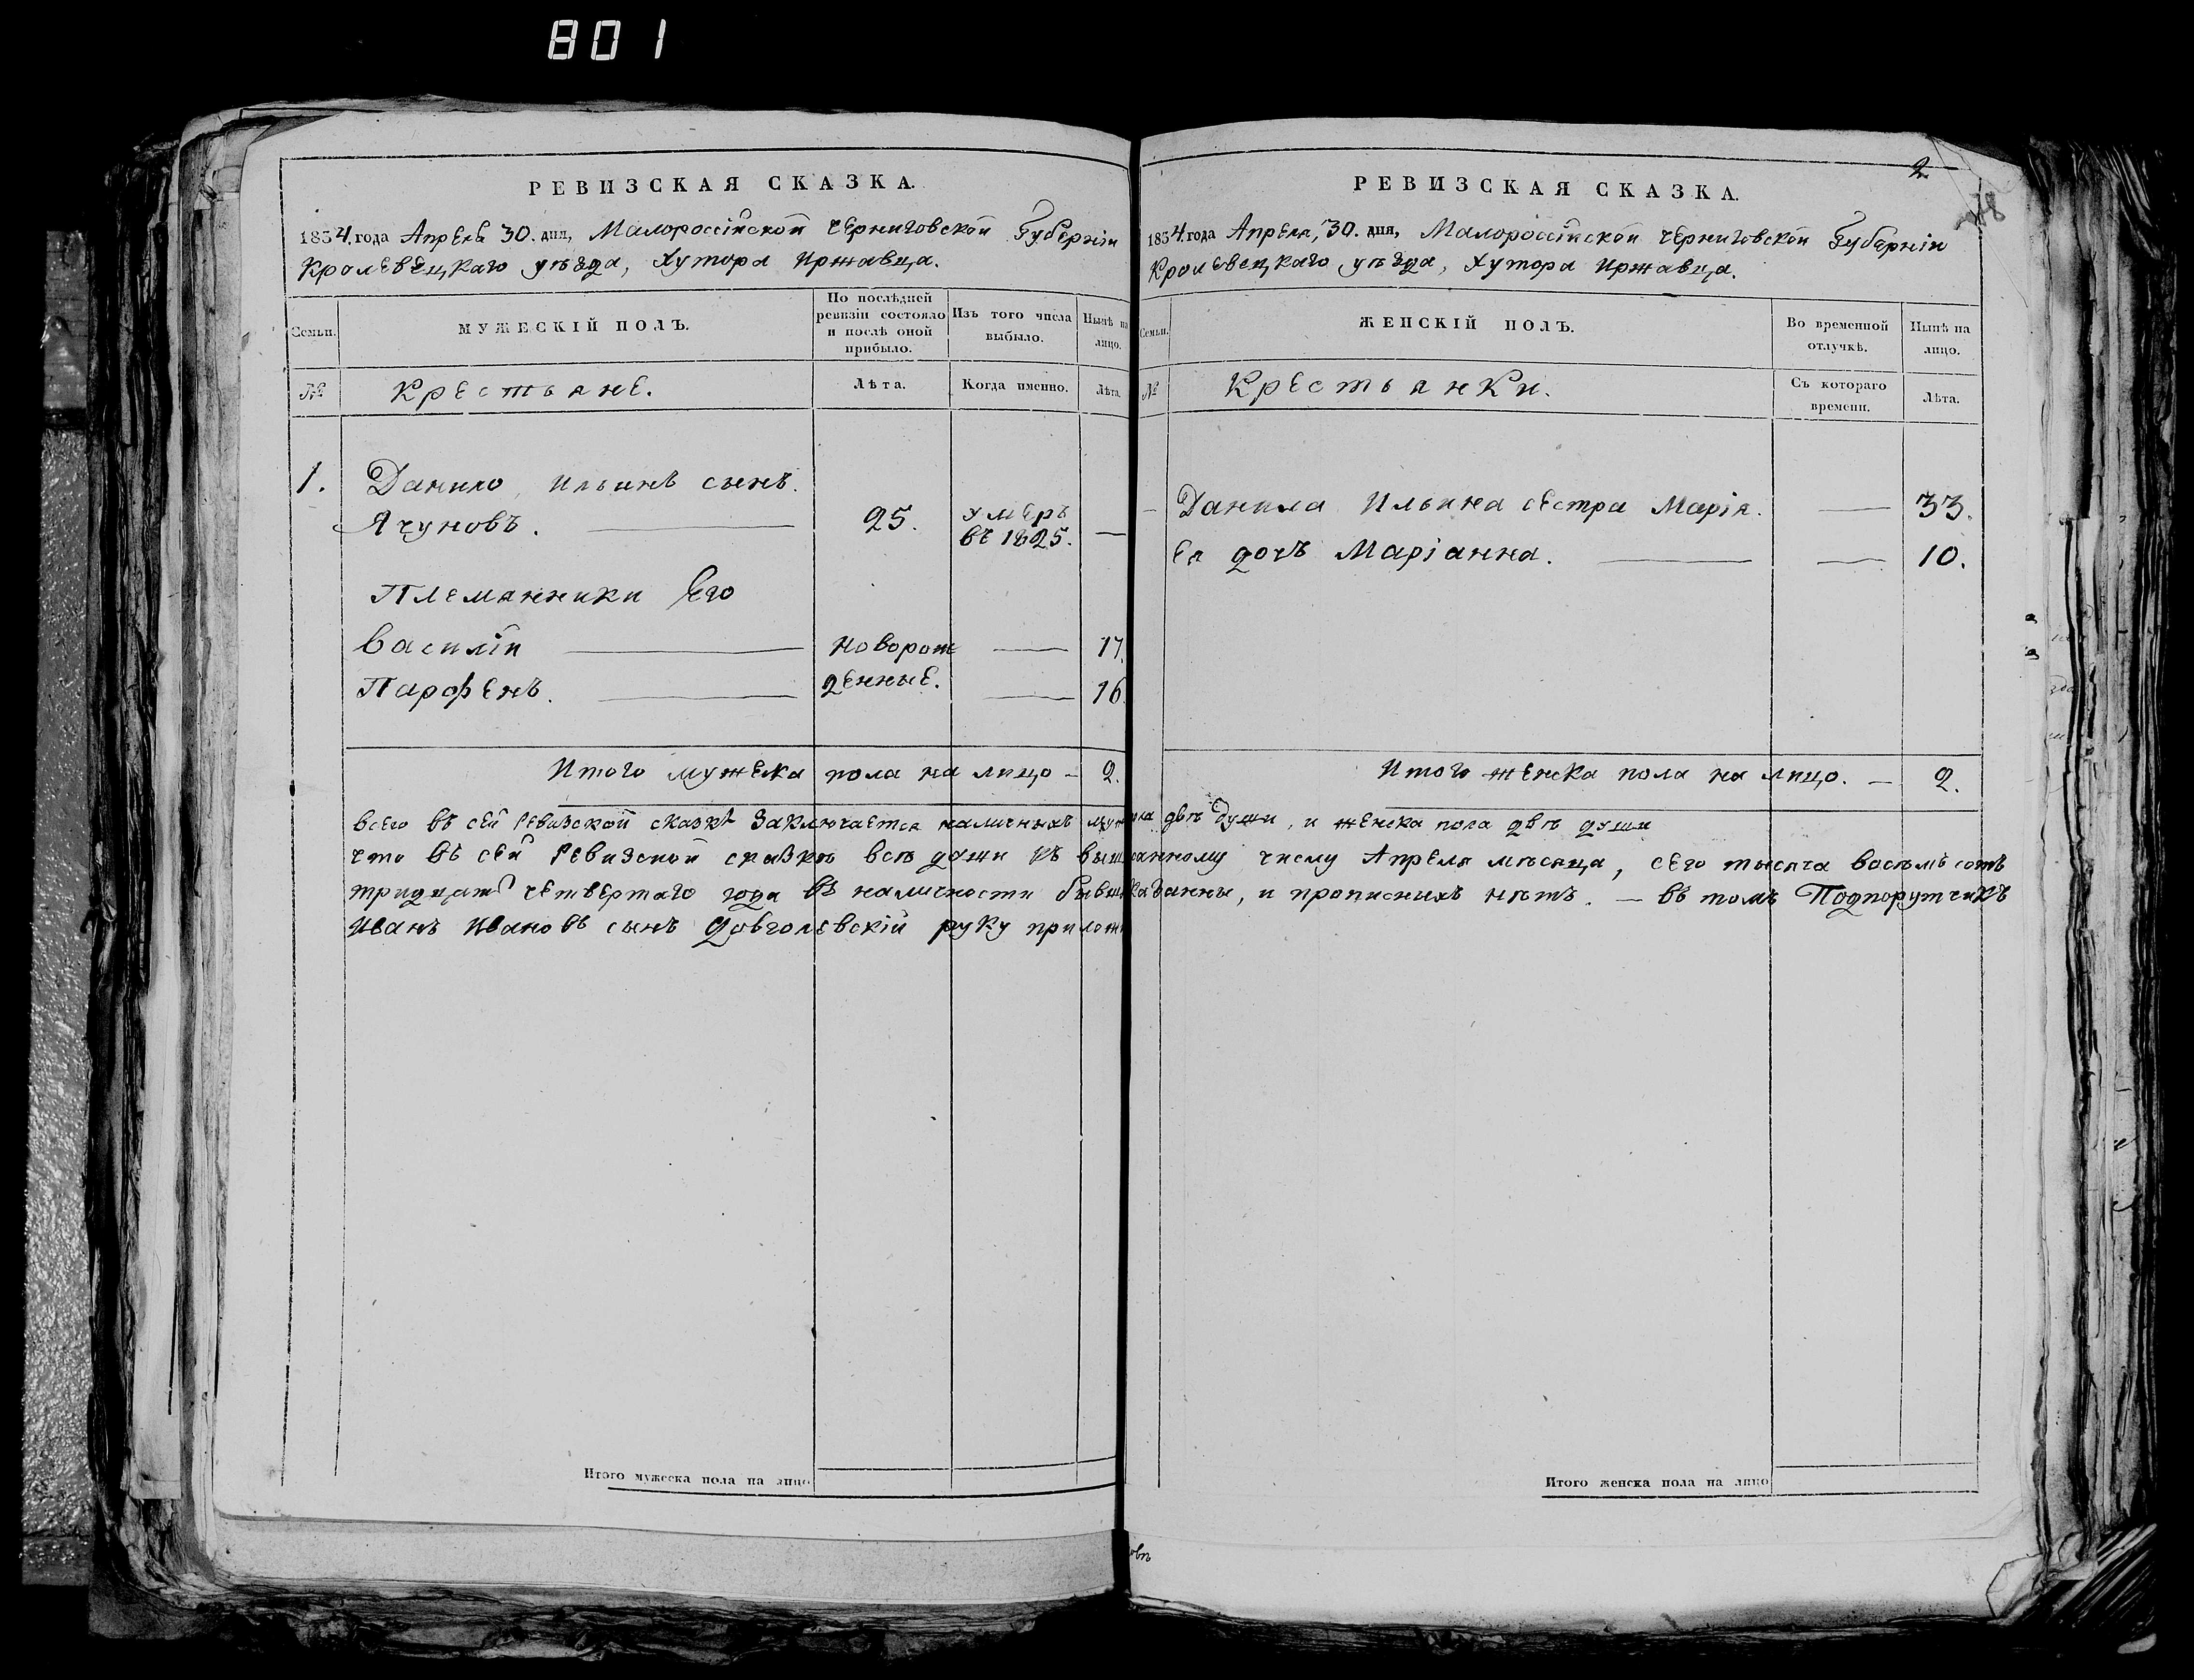 801
РЕВИЗСКАЯ СКАЗКА.
1834. года Апреля 30. дня, Малороссійской Черниговской Губерніи
Кролевецкаго уѣзда, Хутора Иржавца.
Семьи.
МУЖЕСКІЙ ПОЛЪ.
По послѣдней ревизіи состояло и послѣ оной прибыло.
Изъ того числа выбыло.
Нынѣ на лицо.
№
Крестьяне.
Лѣта.
Когда именно.
Лѣта.
1. Данило Ильинъ сынъ.
Ячуновъ. 25. умеръ въ 1825.
Племянники Его
Василій новорож 17.
Парфенъ. денные. 16.
Итого мужеска пола на лицо – 2.
Всего въ сей Ревизской сказкѣ Заключается наличныхъ муж
что въ сей Ревизской сказкѣ всѣ души къ выш
тридцать четвертаго года въ наличности бывш
Иванъ Ивановъ сынъ Довголевскій руку прилож
Итого мужеска пола на лицо
2.
РЕВИЗСКАЯ СКАЗКА.
1834. года Апреля, 30. дня, Малороссійской Черниговской Губерніи
Кролевецкаго уѣзда, Хутора Иржавца.
Семьи.
ЖЕНСКІЙ ПОЛЪ.
Во временной отлучкѣ.
Нынѣ на лицо.
№
Крестьянки.
Съ котораго времени.
Лѣта.
Данила Ильина сестра Марія. 33.
Ея дочъ Маріанна. 10.
Итого женска пола на лицо. – 2.
ска двѣ души, и женска пола двѣ души
санному числу Апреля мѣсяца, сего тысяча восѣмъ сотъ
казанны, и прописнихъ нѣтъ. — въ томъ Подпорутчикъ
Итого женска пола на лицо